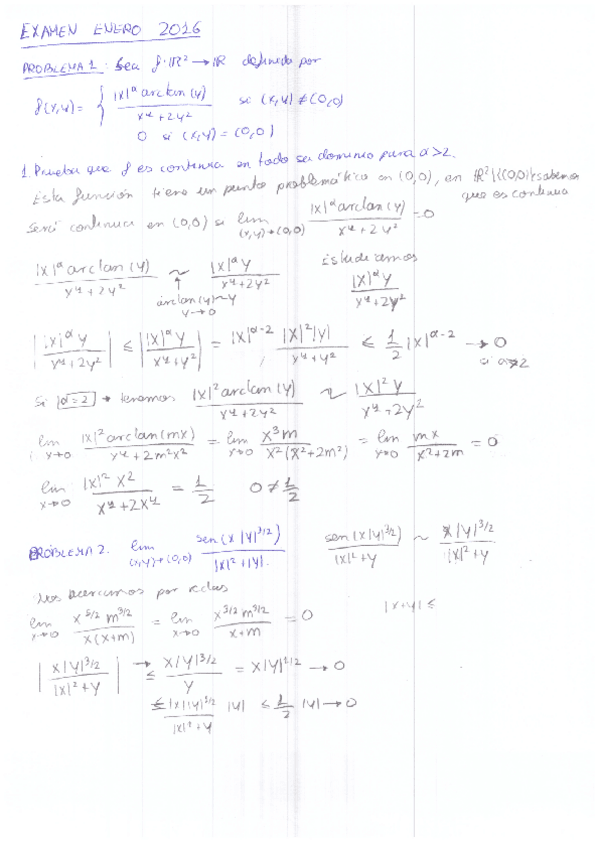 EXAMEN ENERO 2016
PROBLEMA 1: Sea f: ℝ² → ℝ definida por
f(x,y) = { |x|^α arctan(y) / (x⁴+2y²) si (x,y) ≠ (0,0)
0 si (x,y) = (0,0)
1. Prueba que f es continua en todo su dominio para α>2.
Esta función tiene un punto problemático en (0,0), en ℝ²\{(0,0)} sabemos que es continua
Será continua en (0,0) si lim (x,y)→(0,0) |x|^α arctan(y) / (x⁴+2y²) = 0
|x|^α arctan(y) / (x⁴+2y²) ~ |x|^α y / (x⁴+2y²) Estudiamos |x|^α y / (x⁴+2y²)
↑ arctan(y)~y y→0
| |x|^α y / (x⁴+2y²) | ≤ | |x|^α y / (x⁴+y²) | = |x|^(α-2) |x|²|y| / (x⁴+y²) ≤ 1/2 |x|^(α-2) → 0 si α>2
Si α=2 → tenemos |x|² arctan(y) / (x⁴+2y²) ~ |x|² y / (x⁴+2y²)
lim x→0 |x|² arctan(mx) / (x⁴+2m²x²) = lim x→0 x³m / (x²(x²+2m²)) = lim x→0 mx / (x²+2m) = 0
lim x→0 |x|² x² / (x⁴+2x⁴) = 1/2 0≠1/2
PROBLEMA 2. lim (x,y)→(0,0) sen(x|y|^3/2) / (|x|²+|y|). sen(x|y|^3/2) / (|x|²+y) ~ x|y|^3/2 / (|x|²+y)
Nos acercamos por rectas
lim x→0 x^5/2 m^3/2 / (x(x+m)) = lim x→0 x^3/2 m^3/2 / (x+m) = 0 |x+y| ≤
| x|y|^3/2 / (|x|²+y) | → ≤ x|y|^3/2 / y = x|y|^1/2 → 0
≤ |x||y|^1/2 / (|x|²+y) |y| ≤ 1/2 |y| → 0